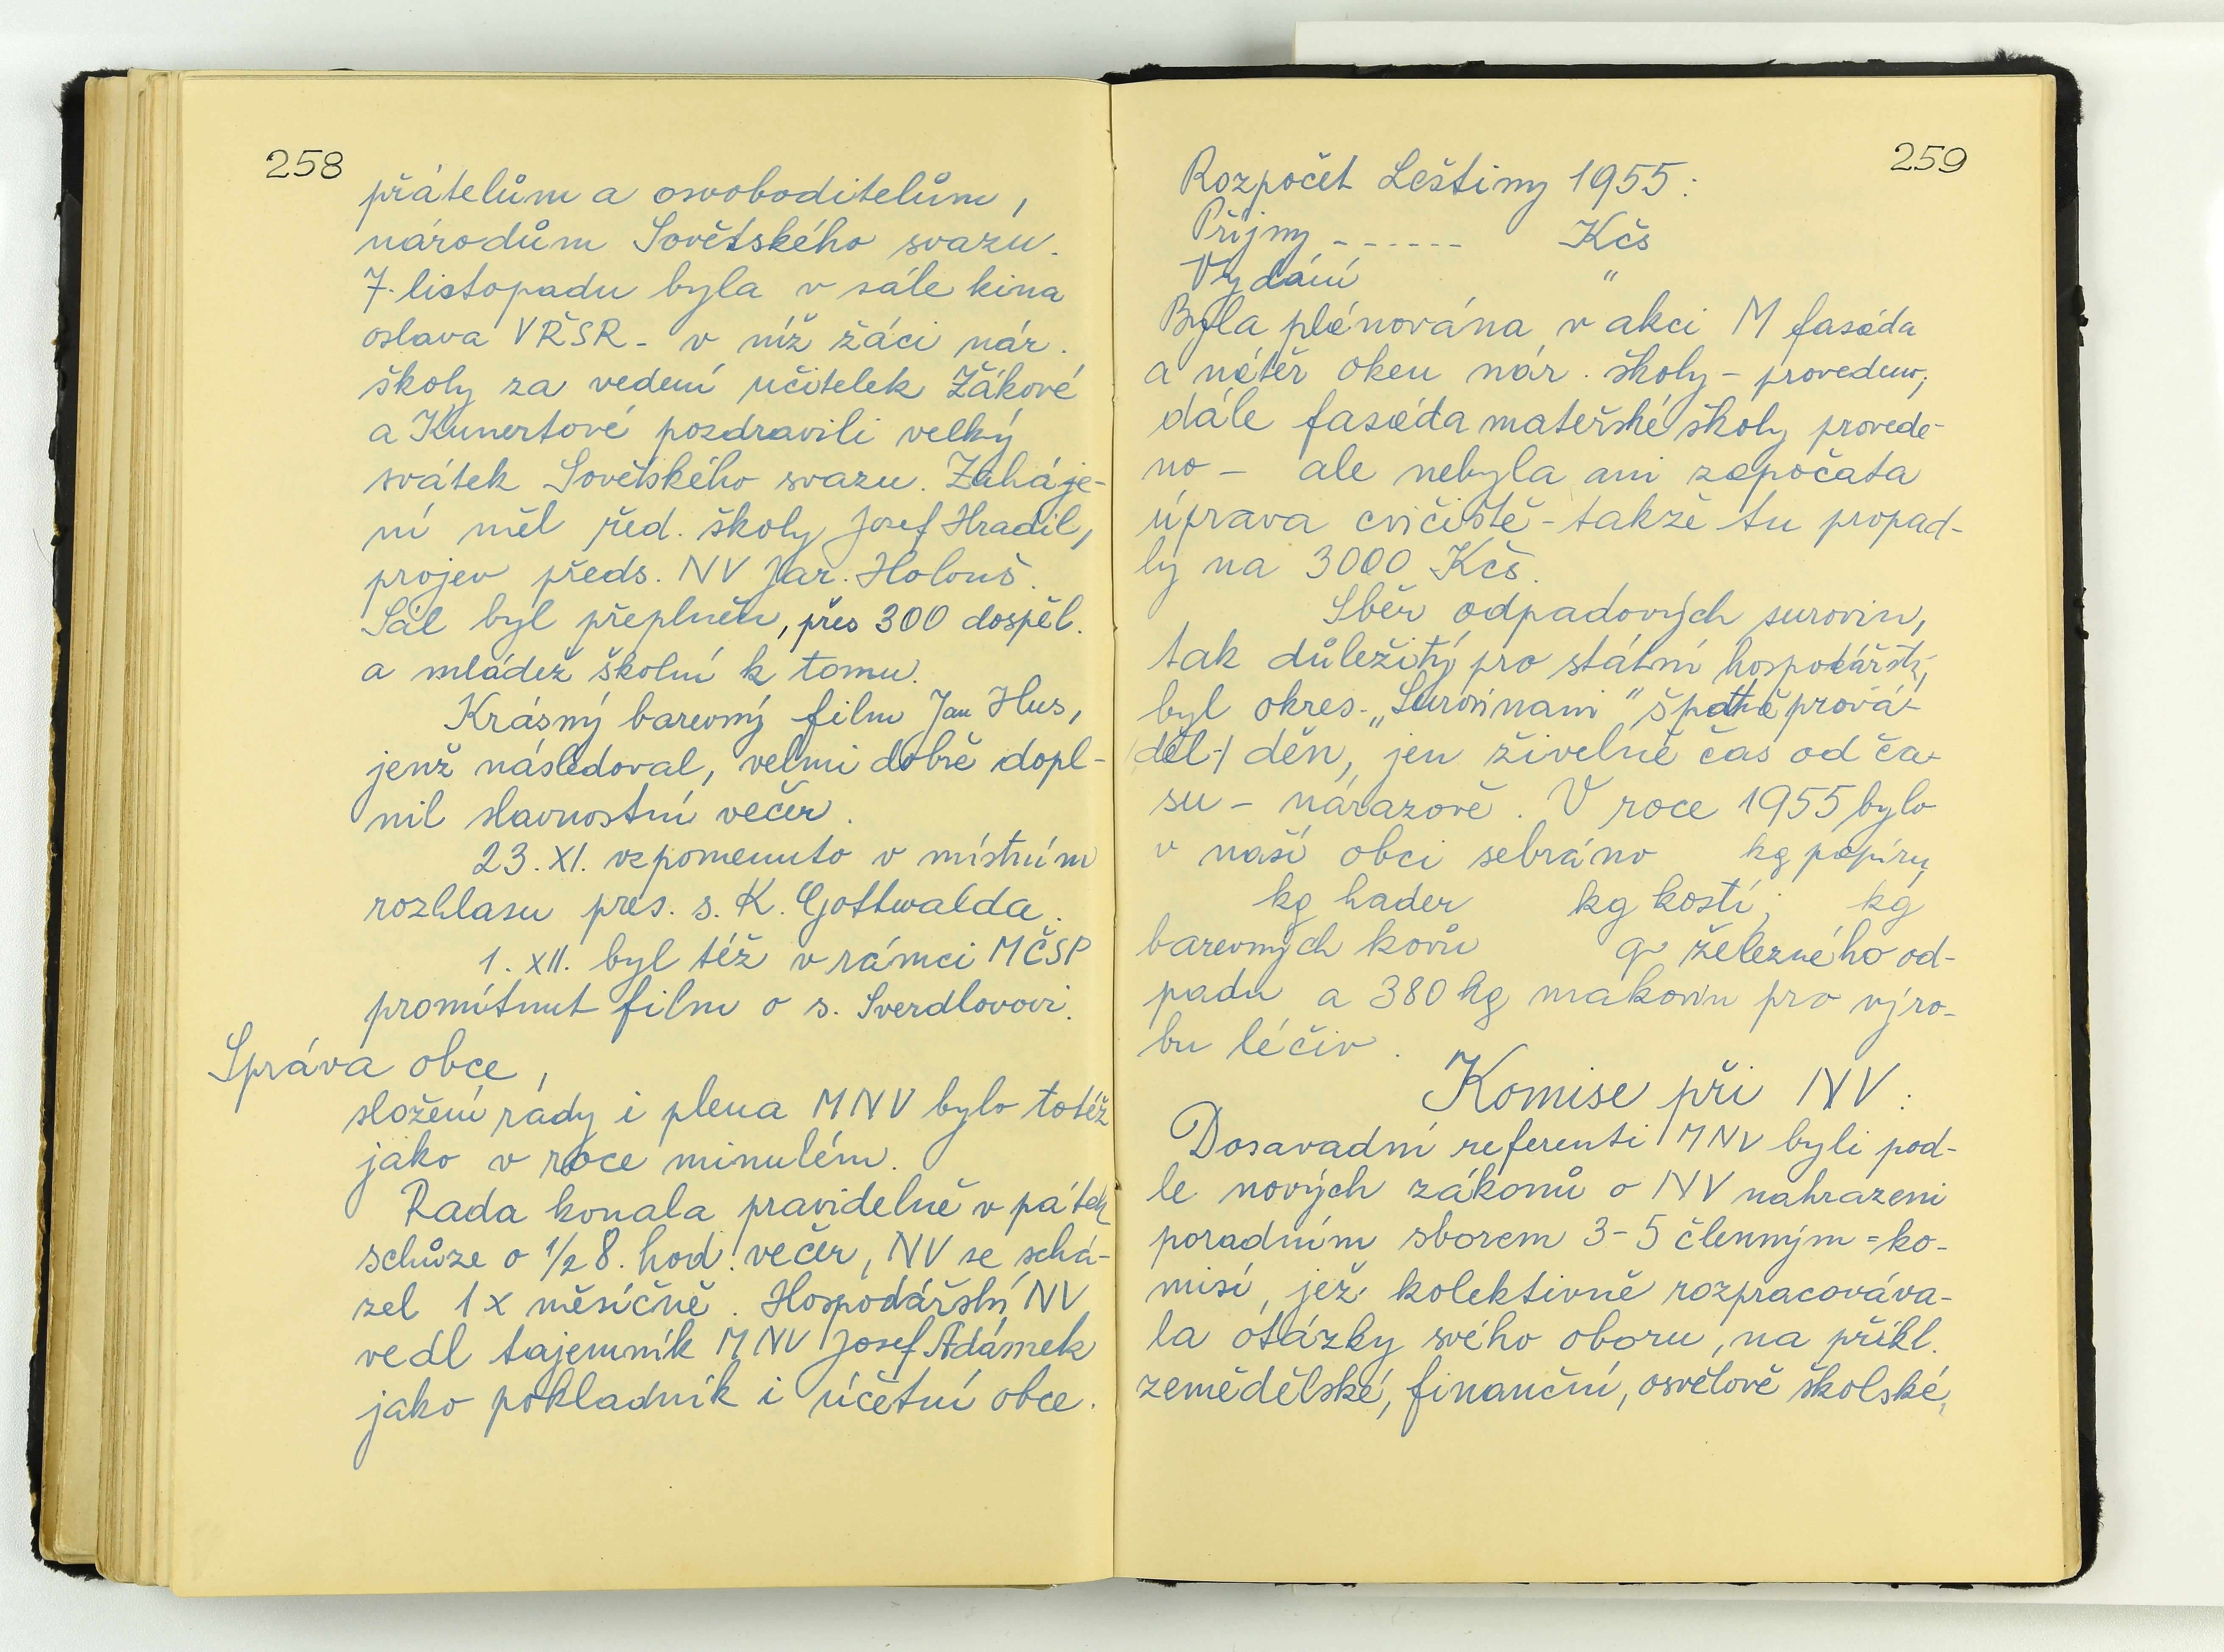 258
přátelům a osvoboditelům,
národům Sovětského svazu.
7. listopadu byla v sále kina
oslava VŘSR - v níž žáci nár.
školy za vedení učitelek Žákové
a Kunertové pozdravili velký
svátek Sovětského svazu. Zaháje-
ní měl řed. školy Josef Hradil,
projev předs. NV Jar. Holouš.
Sál byl přeplněn, přes 300 dospěl.
a mládež školní k tomu.
Krásný barevný film Jan Hus,
jenž následoval, velmi dobře dopl-
nil slavnostní večer.
23. XI. vzpomenuto v místním
rozhlasu pres. s. K. Gottwalda.
1. XII. byl též v rámci MČSP
promítnut film o s. Sverdlovovi.
Správa obce,
složení rady i plena MNV bylo totéž
jako v roce minulém.
Rada konala pravidelně v pátek
schůze o 1/2 8. hod. večer, NV se schá-
zel 1 x měsíčně. Hospodářství NV
vedl tajemník MNV Josef Adámek
jako pokladník i účetní obce.
259
Rozpočet Leštiny 1955:
Příjmy - - - - - - Kčs
Vydání "
Byla plánována v akci M fasáda
a nátěr oken nár. školy - provedeno;
dále fasáda mateřské školy provede-
no - ale nebyla ani započata
úprava cvičiště - takže tu propad-
ly na 3000 Kčs.
Sběr odpadových surovin,
tak důležitý pro státní hospodářství,
byl okres. „Surovinami" špatně prová-
/děl-/ děn, jen živelně čas od ča-
su - nárazově. V roce 1955 bylo
v naší obci sebráno kg papíru,
kg hader kg kostí; kg
barevných kovů q železného od-
padu a 380 kg makovin pro výro-
bu léčiv.
Komise při NV:
Dosavadní referenti MNV byli pod-
le nových zákonů o NV nahrazeni
poradním sborem 3-5 členným = ko-
misí, jež kolektivně rozpracováva-
la otázky svého oboru, na příkl.
zemědělské, finanční, osvětově školské,